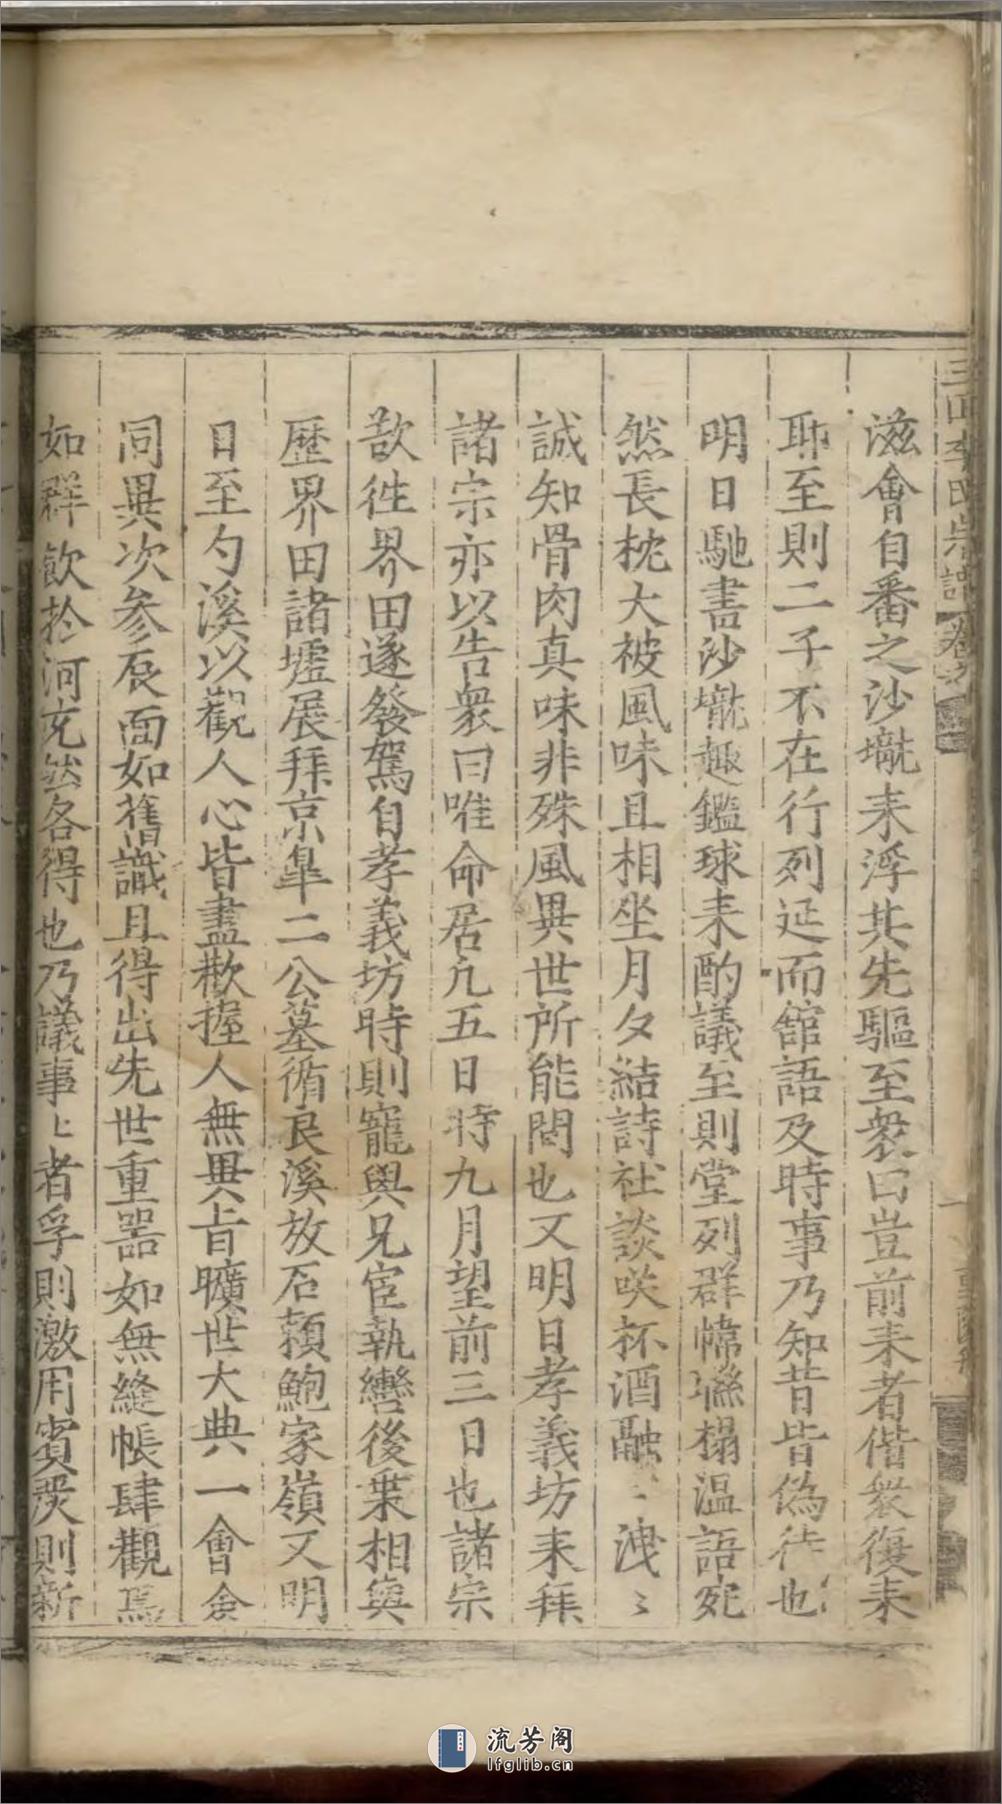 三田李氏宗譜 卷之
滋會自番之沙壠来浮其先驅至衆曰豈前来者偕衆復来
耶至則二子不在行列延而舘語及時事乃知昔皆偽待也
明日馳書沙壠趣鑑球来酌議至則堂列群幃聮榻溫語宛
然長枕大被風味且相坐月夕結詩社談咲杯酒融〻洩〻
誠知骨肉真味非殊風異世所能間也又明日孝義坊来拜
諸宗亦以告衆曰唯命居凢五日時九月望前三日也諸宗
歆徃界田遂發駕自孝義坊時則寵與兄宦執轡後乗相與
歷界田諸墟展拜京臯二公墓循良溪放石頼鮑家嶺又明
日至勺溪以觀人心皆盡歡握人無異㫖曠世大典一會僉
同異次参辰面如舊識且得出先世重噐如無縫帳肆觀焉
如群飲扵河充然各得也乃議事〻者孚則激用賓涣則新
流芳阁
lfglib.cn